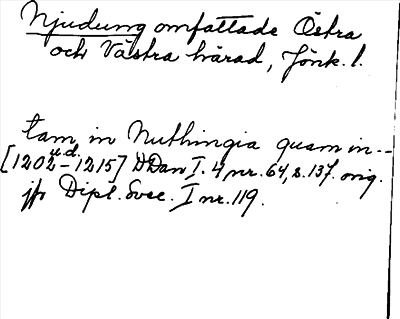 Njudung omfattade Östra
och Västra härad, Jönk. l.
tam in Nuthingia quam in--
u.d.
[1202-1215] DDan I. 4, nr. 64, s. 137. orig.
jfr Dipl. Svec. I nr. 119.